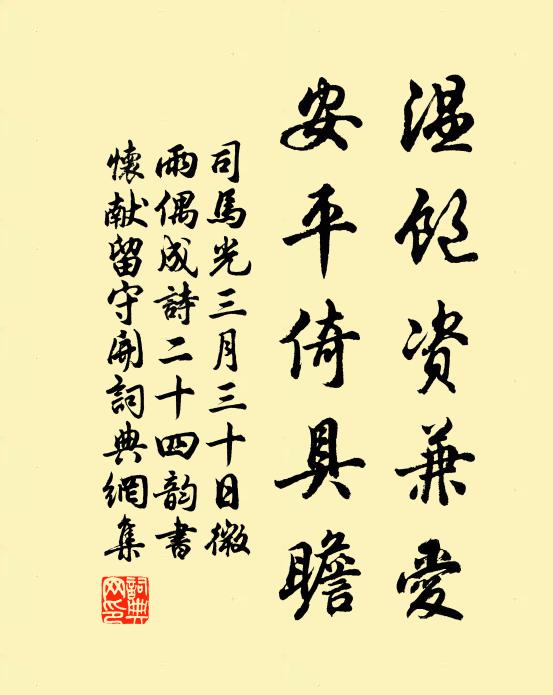 温飽資兼愛
安平倚具瞻
司馬光三月三十日微
雨偶成詩二十四韵書
懷献留守開詞典網集
詞典
网印